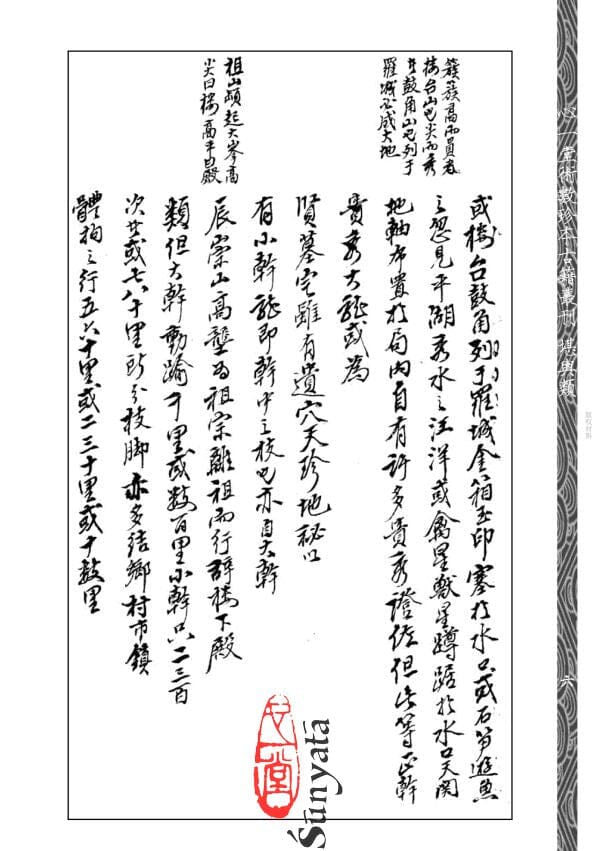 簇簇高而員者
樓台山也尖而秀
者鼓角山也列于
羅城必成大地
祖山頭起大峯高
尖曰樓高平曰殿
或樓台鼓角列于羅城金箱玉印塞於水口或石笋遊魚
之忽見平湖秀水之汪洋或禽星獸星蹲踞於水口天関
地軸布置於局内自有許多貴秀證佐但此等正幹
貴秀大龍或為
賢墓宅雖有遺穴天珍地秘以
有小幹龍即幹中之枝也亦自大幹
辰崇山高壟為祖宗離祖而行辞樓下殿
類但大幹動踰千里或数百里小幹只二三百
次者或七八十里所分枝脚亦多結鄉村市鎮
體拘之行五六十里或二三十里或十数里
心一堂術數珍本古籍叢刊 堪輿類
六
心一堂
Śūnyatā